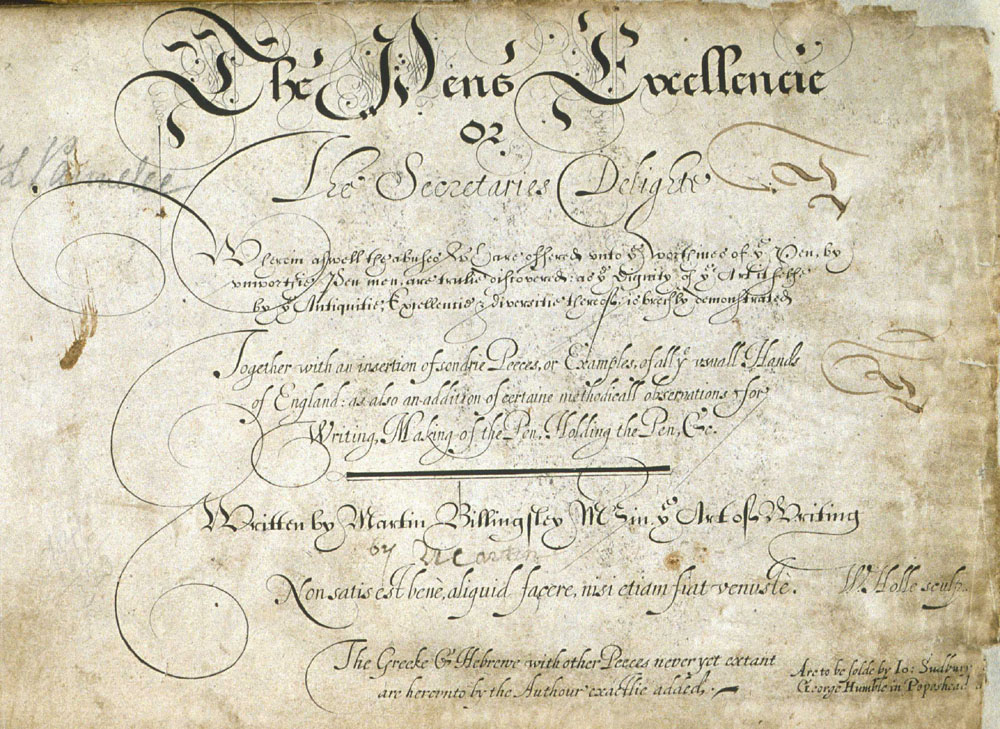 The Pens Excellencie
OR
The Secretaries Delighte
Wherein aswell the abuses wch are offered vnto ye worthines of ye Pen, by
vnworthie Pen men, are trulie discovered: as ye Dignity of ye Art it selfe
by ye Antiquitie, Excellencie & diversitie thereof, is breifly demonstrated
Together with an insertion of sondrie Peeces, or Examples, of all ye vsuall Hands
of England: as also an addition of certaine methodicall observations for
Writing, Making of the Pen, Holding the Pen, &c.
Written by Martin Billingsley Mr in ye Art of Writing
by Marten
Non satis est benè, aliquid facere, nisi etiam fiat venuste. W: Holle sculp.
The Greeke & Hebrewe with other Peeces never yet extant
are herevnto by the Authour exactlie added.
Are to be solde by Io: Sudbury
George Humble in Popeshead